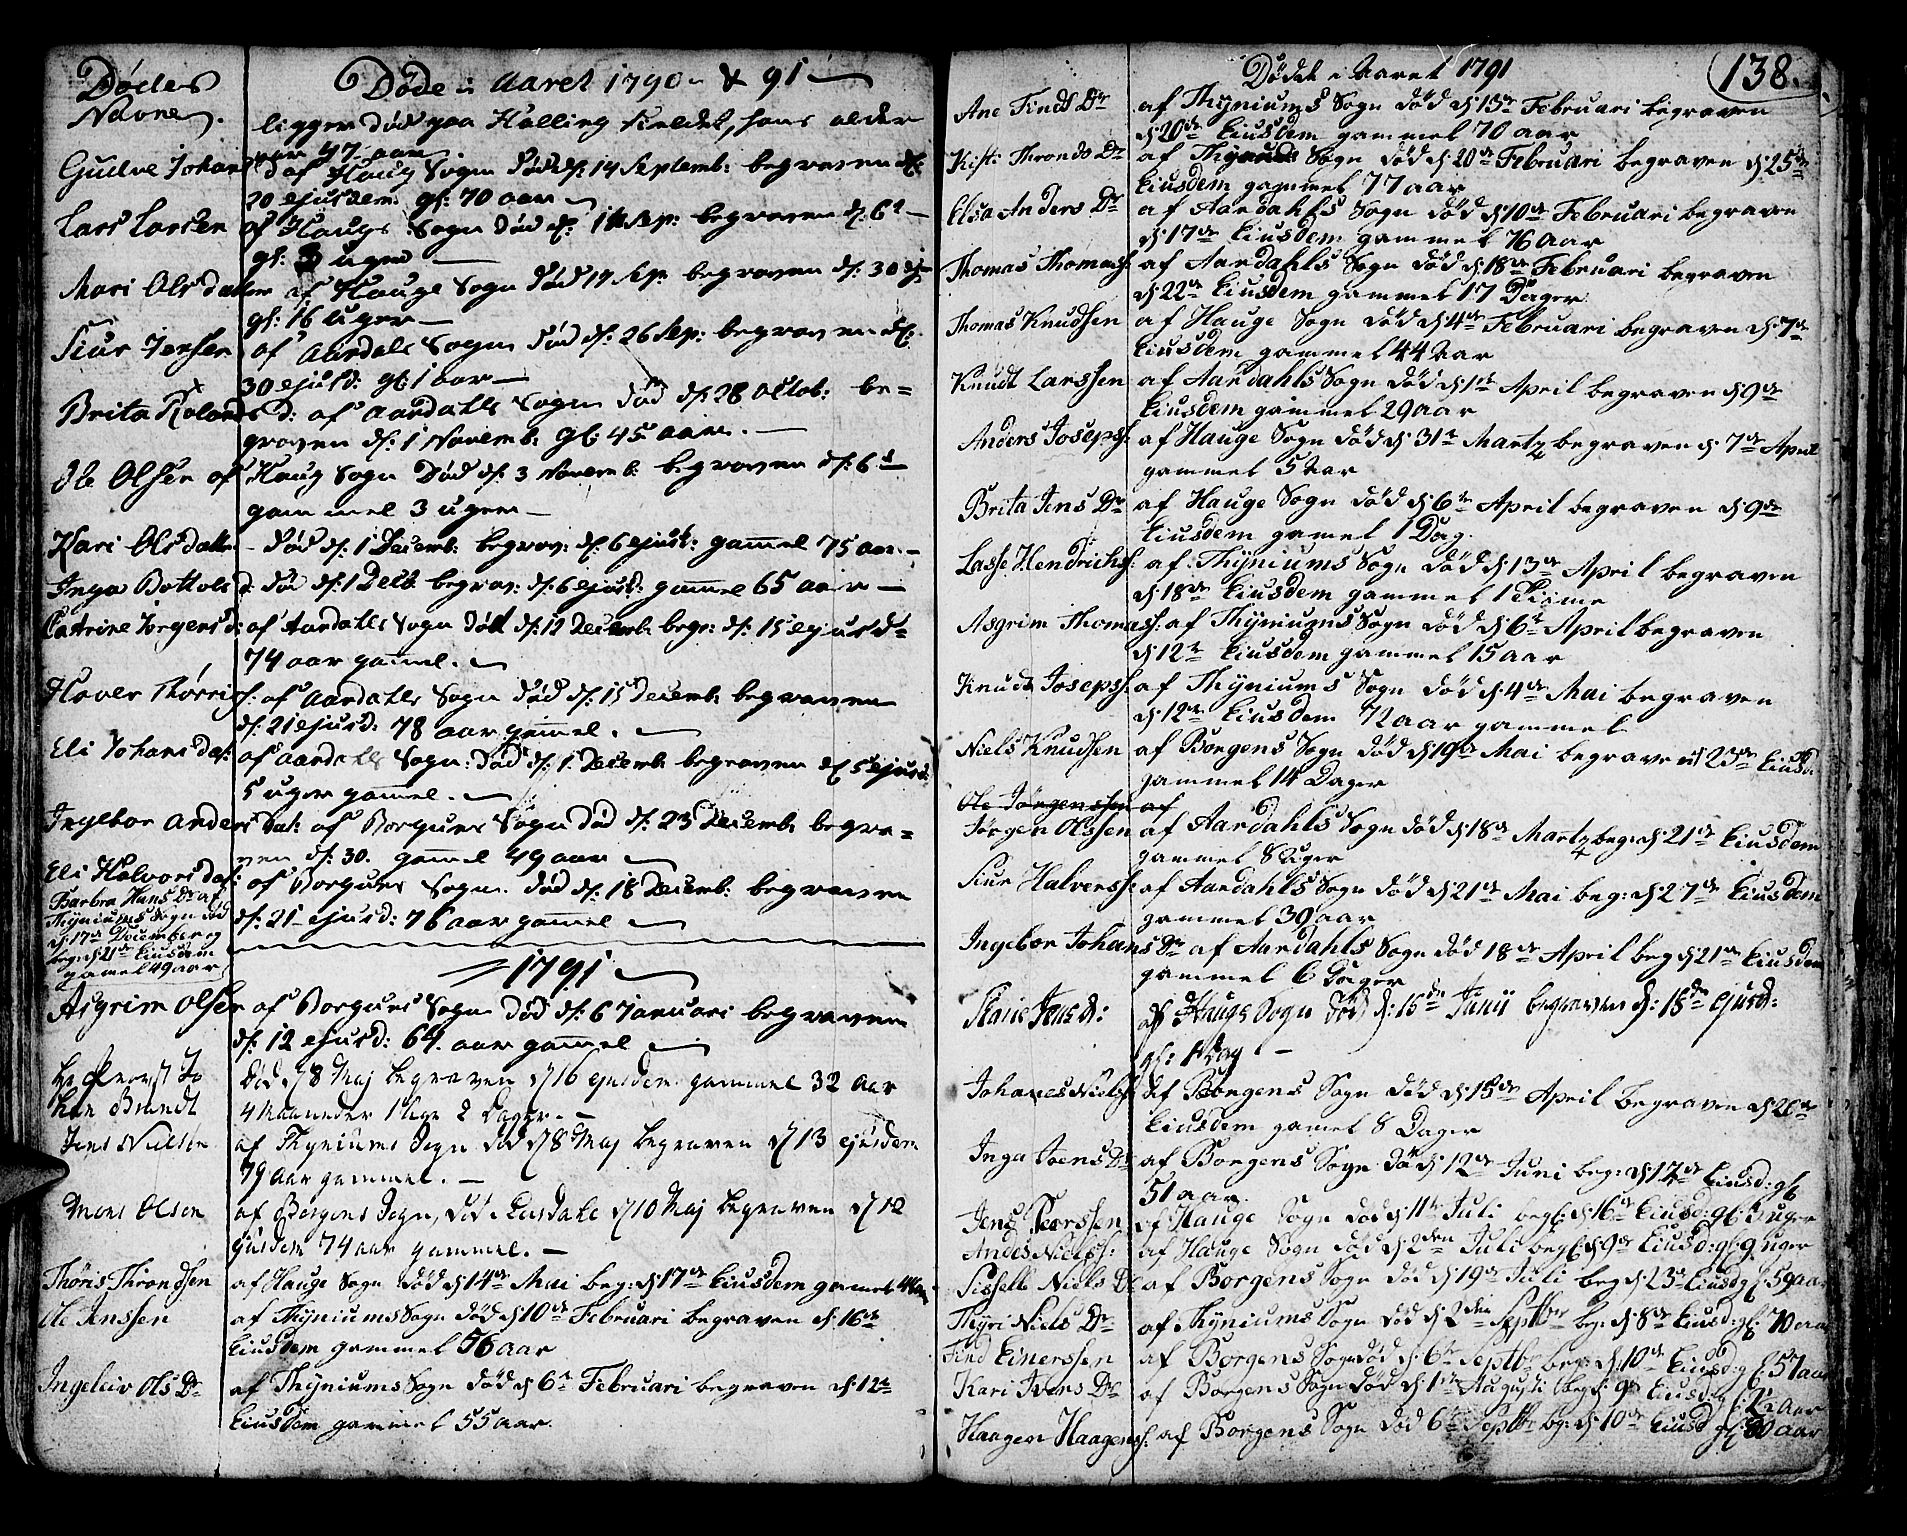 Dødes Navne.
Døde i Aaret 1790 & 91
ligger død paa Halling Field, hans alder
var 47 aar
Gudve Johans d af Haug Sogn død d: 14 Septemb: begraven d:
20 ejusdem gl: 70 aar
Lars Larsen af Haugs Sogn død d: Sep: begraven d: 6t
gl: 3 uger
Mari Olsdatter af Hauge Sogn død 14 Sep: begraven d: 30 ej
gl: 16 uger
Siur Jensen af Aardals Sogn død d: 26 Sep: begraven d:
30 ejusd: gl: 1 aar
Brita Rolands d: af Aardahls Sogn død d: 28 Octob: be=
graven d: 1 Novemb: gl: 45 aar.
Ole Olsen af Haug Sogn Død d: 3 Novemb: begraven d: 6t
gammel 3 uger
Kari Olsdatter - død d: 1 Decemb: begrav: d: 6 ejusd: gamel 75 aar
Inga Bottols d: død d: 1 Decb begrav: d: 6 ejusd: gamel 65 aar
Catrine Jørgensd: af Aardahls Sogn død d: 12 Decemb: begr: d: 15 ejusd=
74 aar gamel.
Haver Thorris s: af Aardahls Sogn død d: 15 Decemb: begraven
d: 21 ejusd: 78 aar gamel.
Eli Johans dat: af Aardahls Sogn: død d: 1 Decemb: begraven d: 5 ejusd
5 uger gamel.
Ingebor Anders dat: af Borgunds Sogn død d: 23 Decemb: begra=
ven d: 30. gamel 49 aar
Eli Halvors dat: af Borgunds Sogn. død d: 18 Decemb: begraven
d: 21 ejusd: 76 aar gamel
Barbra Hans Dr af
Thyniums Sogn død
d: 17de December og
begr: d: 21de Eiusdem
gamel 49 aar
1791
Asgrim Olsen af Borgunds Sogn død d: 6 Januari begraven
d: 12 ejusd: 64. aar gamel
Hr Provst Jo
han Brandt
død d 8 Maj begraven d 16 ejusdem gammel 32 aar
4 Maaneder 1 Uge 2 Dager.
Jens Nielsen af Thyniums Sogn død d 8 Maj begraven d 13 ejusdem
79 aar gammel.
Mons Olsen af Borgens Sogn, død i Leirdahl d 10 Maj begraven d 12
ejusdem 74 aar gammel.
Thøris Throndsen af Hauge Sogn død d: 14de Mai beg: d: 17de Eiusdem gamel
Ole Jenssen af Thyniums Sogn død d: 10de Februari begraven d: 16de
Eiusdem gammel 56 aar
Ingeleiv Ols Dr af Thyniums Sogn død d: 6te Februari begraven d: 12te
Eiusdem gammel 55 aar.
Dødde i Aaret 1791
138.
Ane Finds Dr af Thyniums Sogn død d: 13de Februari begraven
d: 20de Eiusdem gammel 70 aar
Kist: Thronds Dr af Thyniums Sogn død d: 20de Februari begraven d: 25de
Eiusdem gammel 77 aar
Elsa Anders Dr af Aardahls Sogn død d: 10de Februari begraven
d: 17de Eiusdem gammel 76 aar
Thomas Thomass: af Aardahls Sogn død d: 18de Februari begraven
d: 22de Eiusdem gammel 17 Dager
Thomas Knudsen af Hauge Sogn død d: 4de Februari begraven d: 7de
Eiusdem gammel 44 Aar
Knudt Larssen af Aardahls Sogn død d: 1te April begraven d: 9de
Eiusdem gammel 29 aar
Anders Joseps: af Hauge Sogn død d: 31te Martz begraven d: 7de April
gammel 5 aar
Brita Jens Dr af Hauge Sogn død d: 6te April begraven d: 9de
Eiusdem gamel 1 Dag.
Lasse Hendrichs: af Thyniums Sogn død d: 13de April begraven
d: 18de Eiusdem gammel 1 Time
Asgrim Thomass: af Thyniums Sogn død d: 6te April begraven
d: 12te Eiusdem gammel 15 aar
Knudt Joseps: af Thyniums Sogn død d: 4de Mai begraven
d: 12te Eiusdem 72 aar gammel
Niels Knudsen af Borgens Sogn død d: 19de Mai begraven d: 23de Eiusd
gammel 14 Dager
Ole Jörgenssen af
Jörgen Olssen af Aardahls Sogn død d: 18de Martz beg: d: 21de Eiusdem
gammel 8 uger
Siur Halverss: af Aardahls Sogn død d: 21de Mai beg: d: 27de Eiusdem
gammel 39 aar
Ingebor Johans Dr af Aardahls Sogn død 18de April beg d: 21de Eiusdem
gammel 6 Dager
Marie Jens D: af Haugs Sogn død d: 15de Junii begraven d: 18de ejusd:
gl: 1 Dag.
Johanes Niels: af Borgens Sogn død d: 15de April begraven d: 20de
Eiusdem gamel 8 Dager
Inga Joens Dr af Borgens Sogn død d: 12de Juni beg: d: 17de Eiusd: gl
51 aar.
Jens Peerssen af Hauge Sogn død d: 11te Juli beg: d: 16de Eiusd: gl: 3 uger
Andes Nielss: af Hauge Sogn død d: 2den Juli beg: d: 9de Eiusd: gl: 9 uger
Sisselle Niels Dr af Borgens Sogn død d: 19de Juli beg d: 23de Eiusd gl: 59 aar
Thyri Niels Dr af Thyniums Sogn død d: 2den Septbr beg: d: 8de Eiusd: gl: 70 aar
Find Einerssen af Borgens Sogn død d: 6te Septbr beg: d: 10de Eiusd: gl: 57 aar
Kari Ivers Dr af Borgens Sogn død d: 1te Augusti beg: d: 9de Eiusd: gl: 2½ aar
Haagen Haagens s: af Borgens Sogn død 6te Septbr bg: d: 10de Eiusd gl: 80 aar